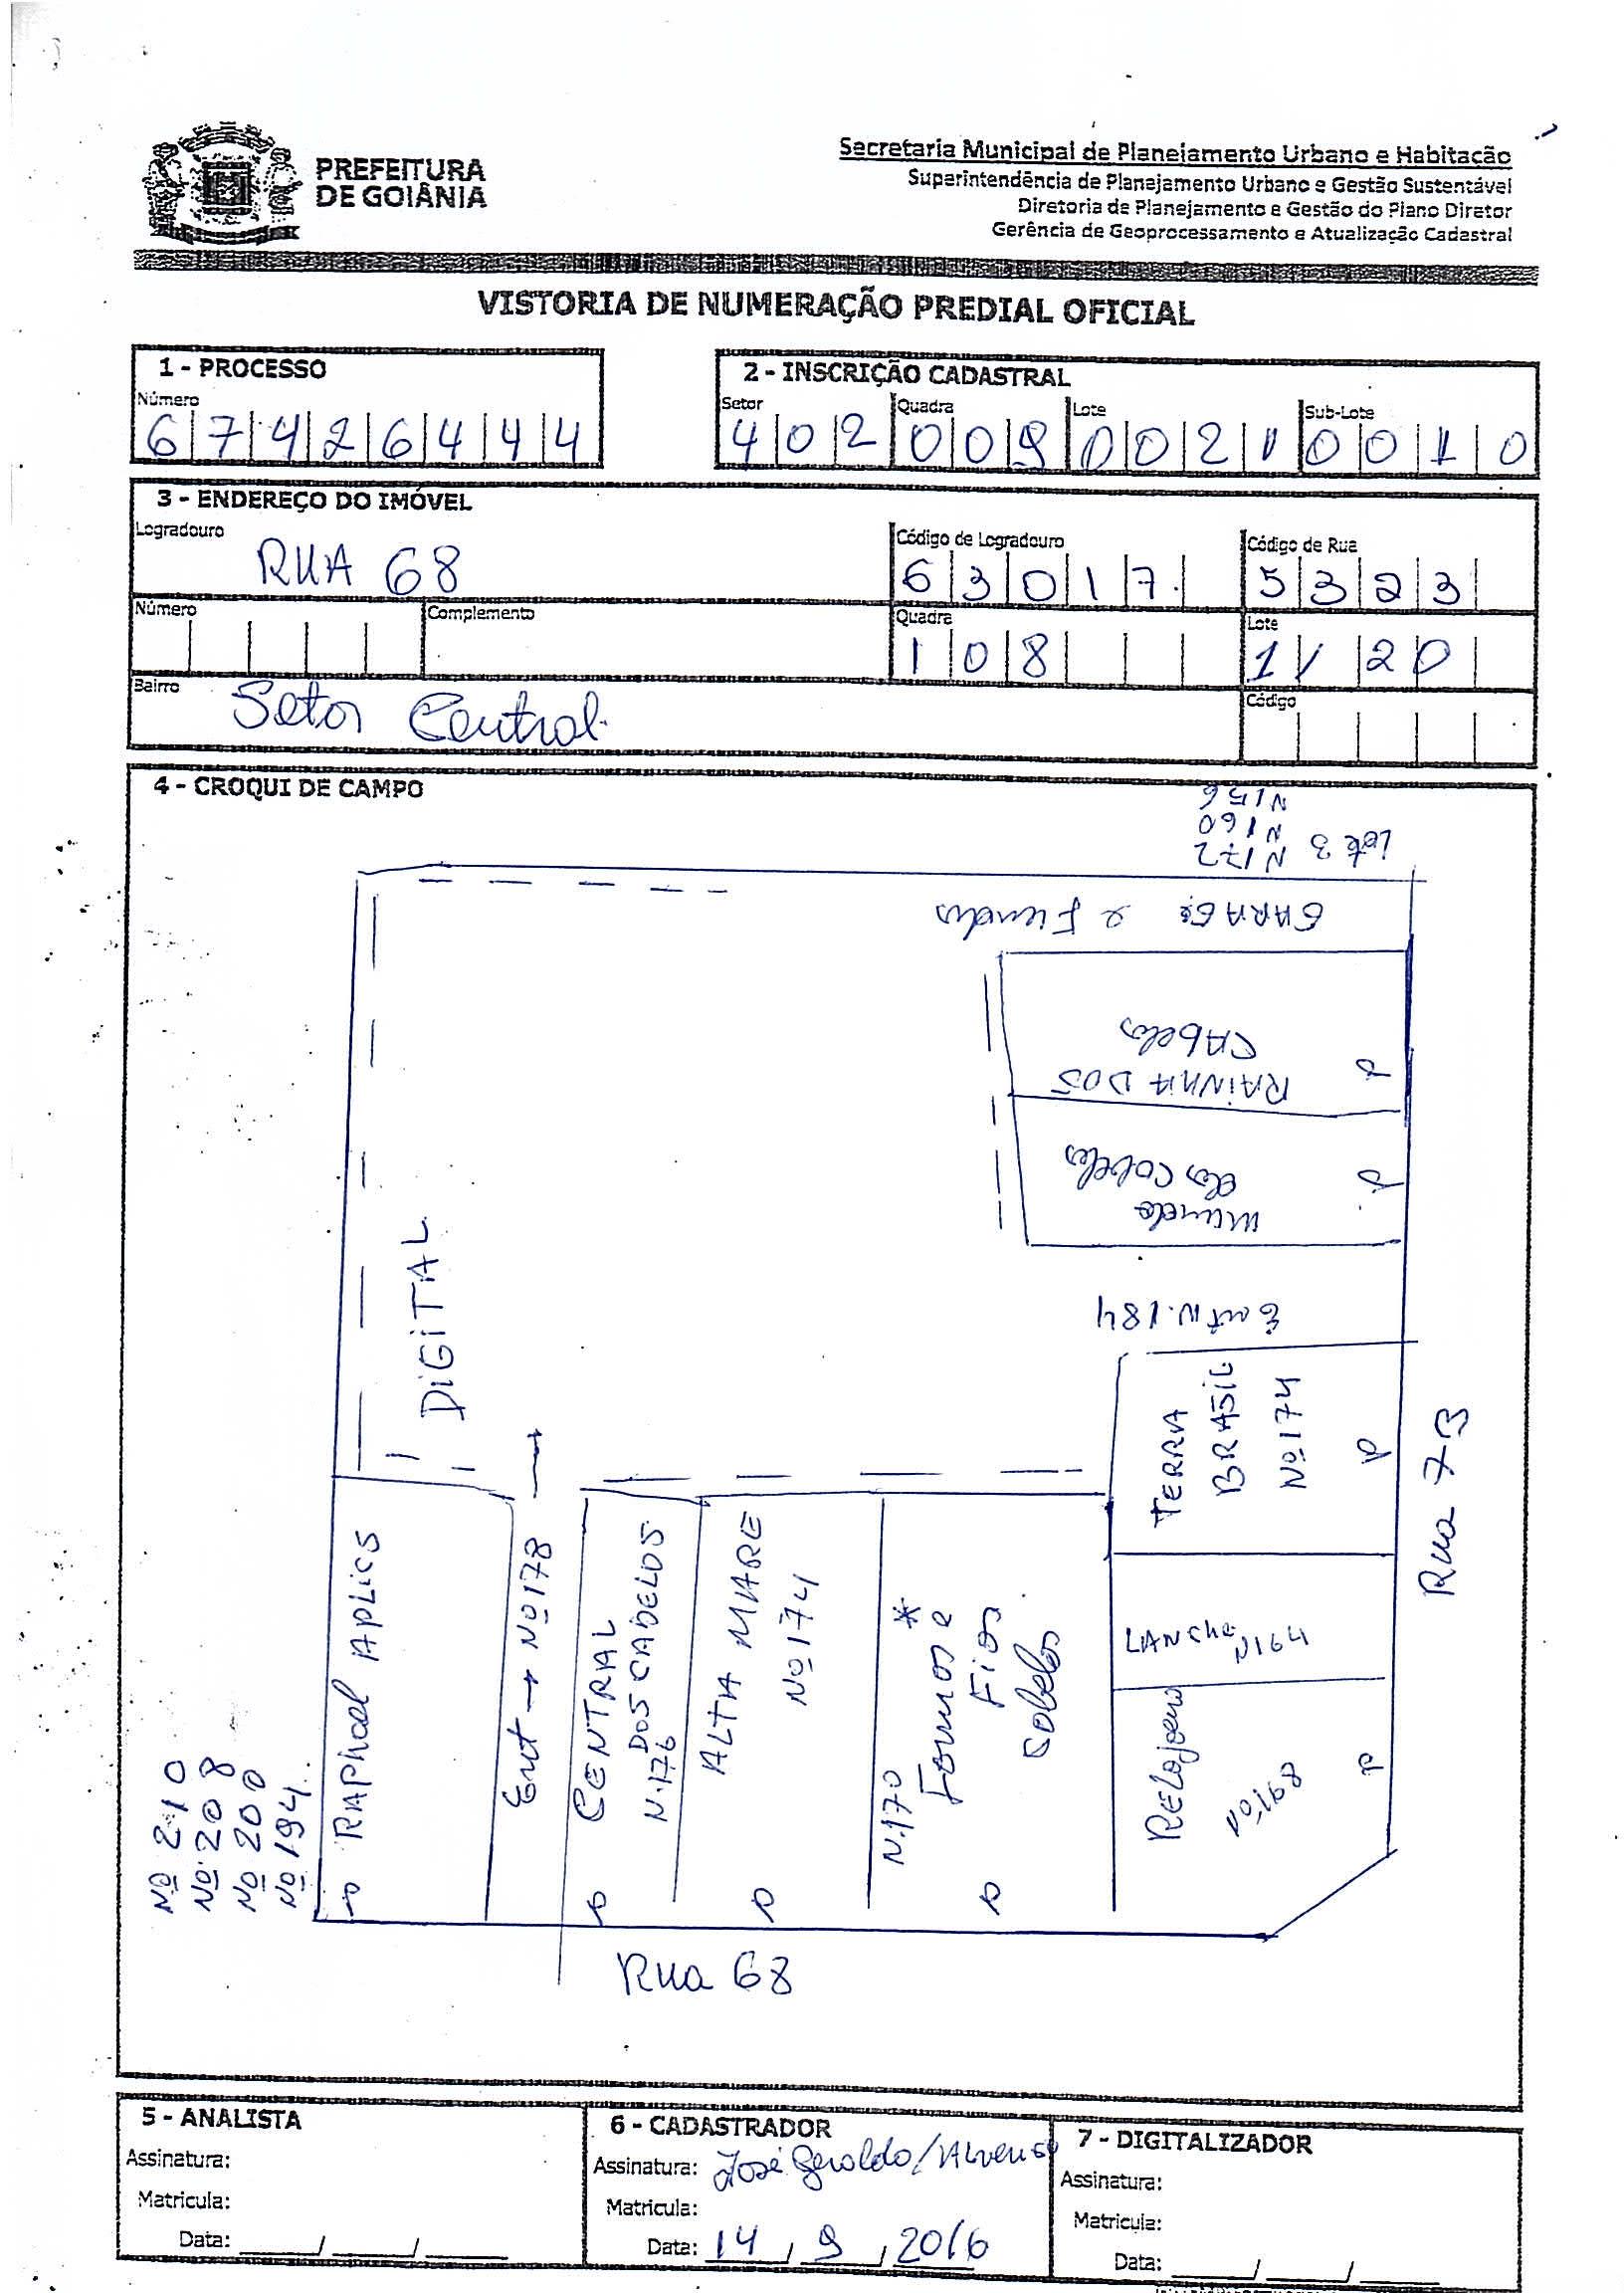 PREFEITURA
DE GOIÂNIA
Secretaria Municipal de Planejamento Urbano e Habitação
Superintendência de Planejamento Urbano e Gestão Sustentável
Diretoria de Planejamento e Gestão do Plano Diretor
Gerência de Geoprocessamento e Atualização Cadastral
VISTORIA DE NUMERAÇÃO PREDIAL OFICIAL
1 - PROCESSO
Número
67426444
2 - INSCRIÇÃO CADASTRAL
Setor Quadra Lote Sub-Lote
402 009 0021 0010
3 - ENDEREÇO DO IMÓVEL
Logradouro Código de Logradouro Código de Rua
RUA 68 63017. 5323
Número Complemento Quadra Lote
108 1/20
Bairro Código
Setor Central.
4 - CROQUI DE CAMPO
N156
N160
Lote 3 N172
GARAGE e Fundos
RAINHA DOS
CAbelos
P
mundo
dos Cabelos
P
Ent N.184
DiGiTAL
TERRA
BRASIL
Nº 174
P
Rua 73
RAPhael APLics
Ent → Nº 178
CENTRAL
DOS CABELOS
N.176
ALTA MARE
Nº 174
N.170 *
Fios
P
LANChe
N164
RELojoeiro
Nº 168
P
Nº 210
Nº 208
Nº 200
Nº 194..
Rua 68
5 - ANALISTA
Assinatura:
Matricula:
Data: ____/____/____
6 - CADASTRADOR
Assinatura: José Geraldo/
Matricula:
Data: 14/9/2016
7 - DIGITALIZADOR
Assinatura:
Matricula:
Data: ____/____/____